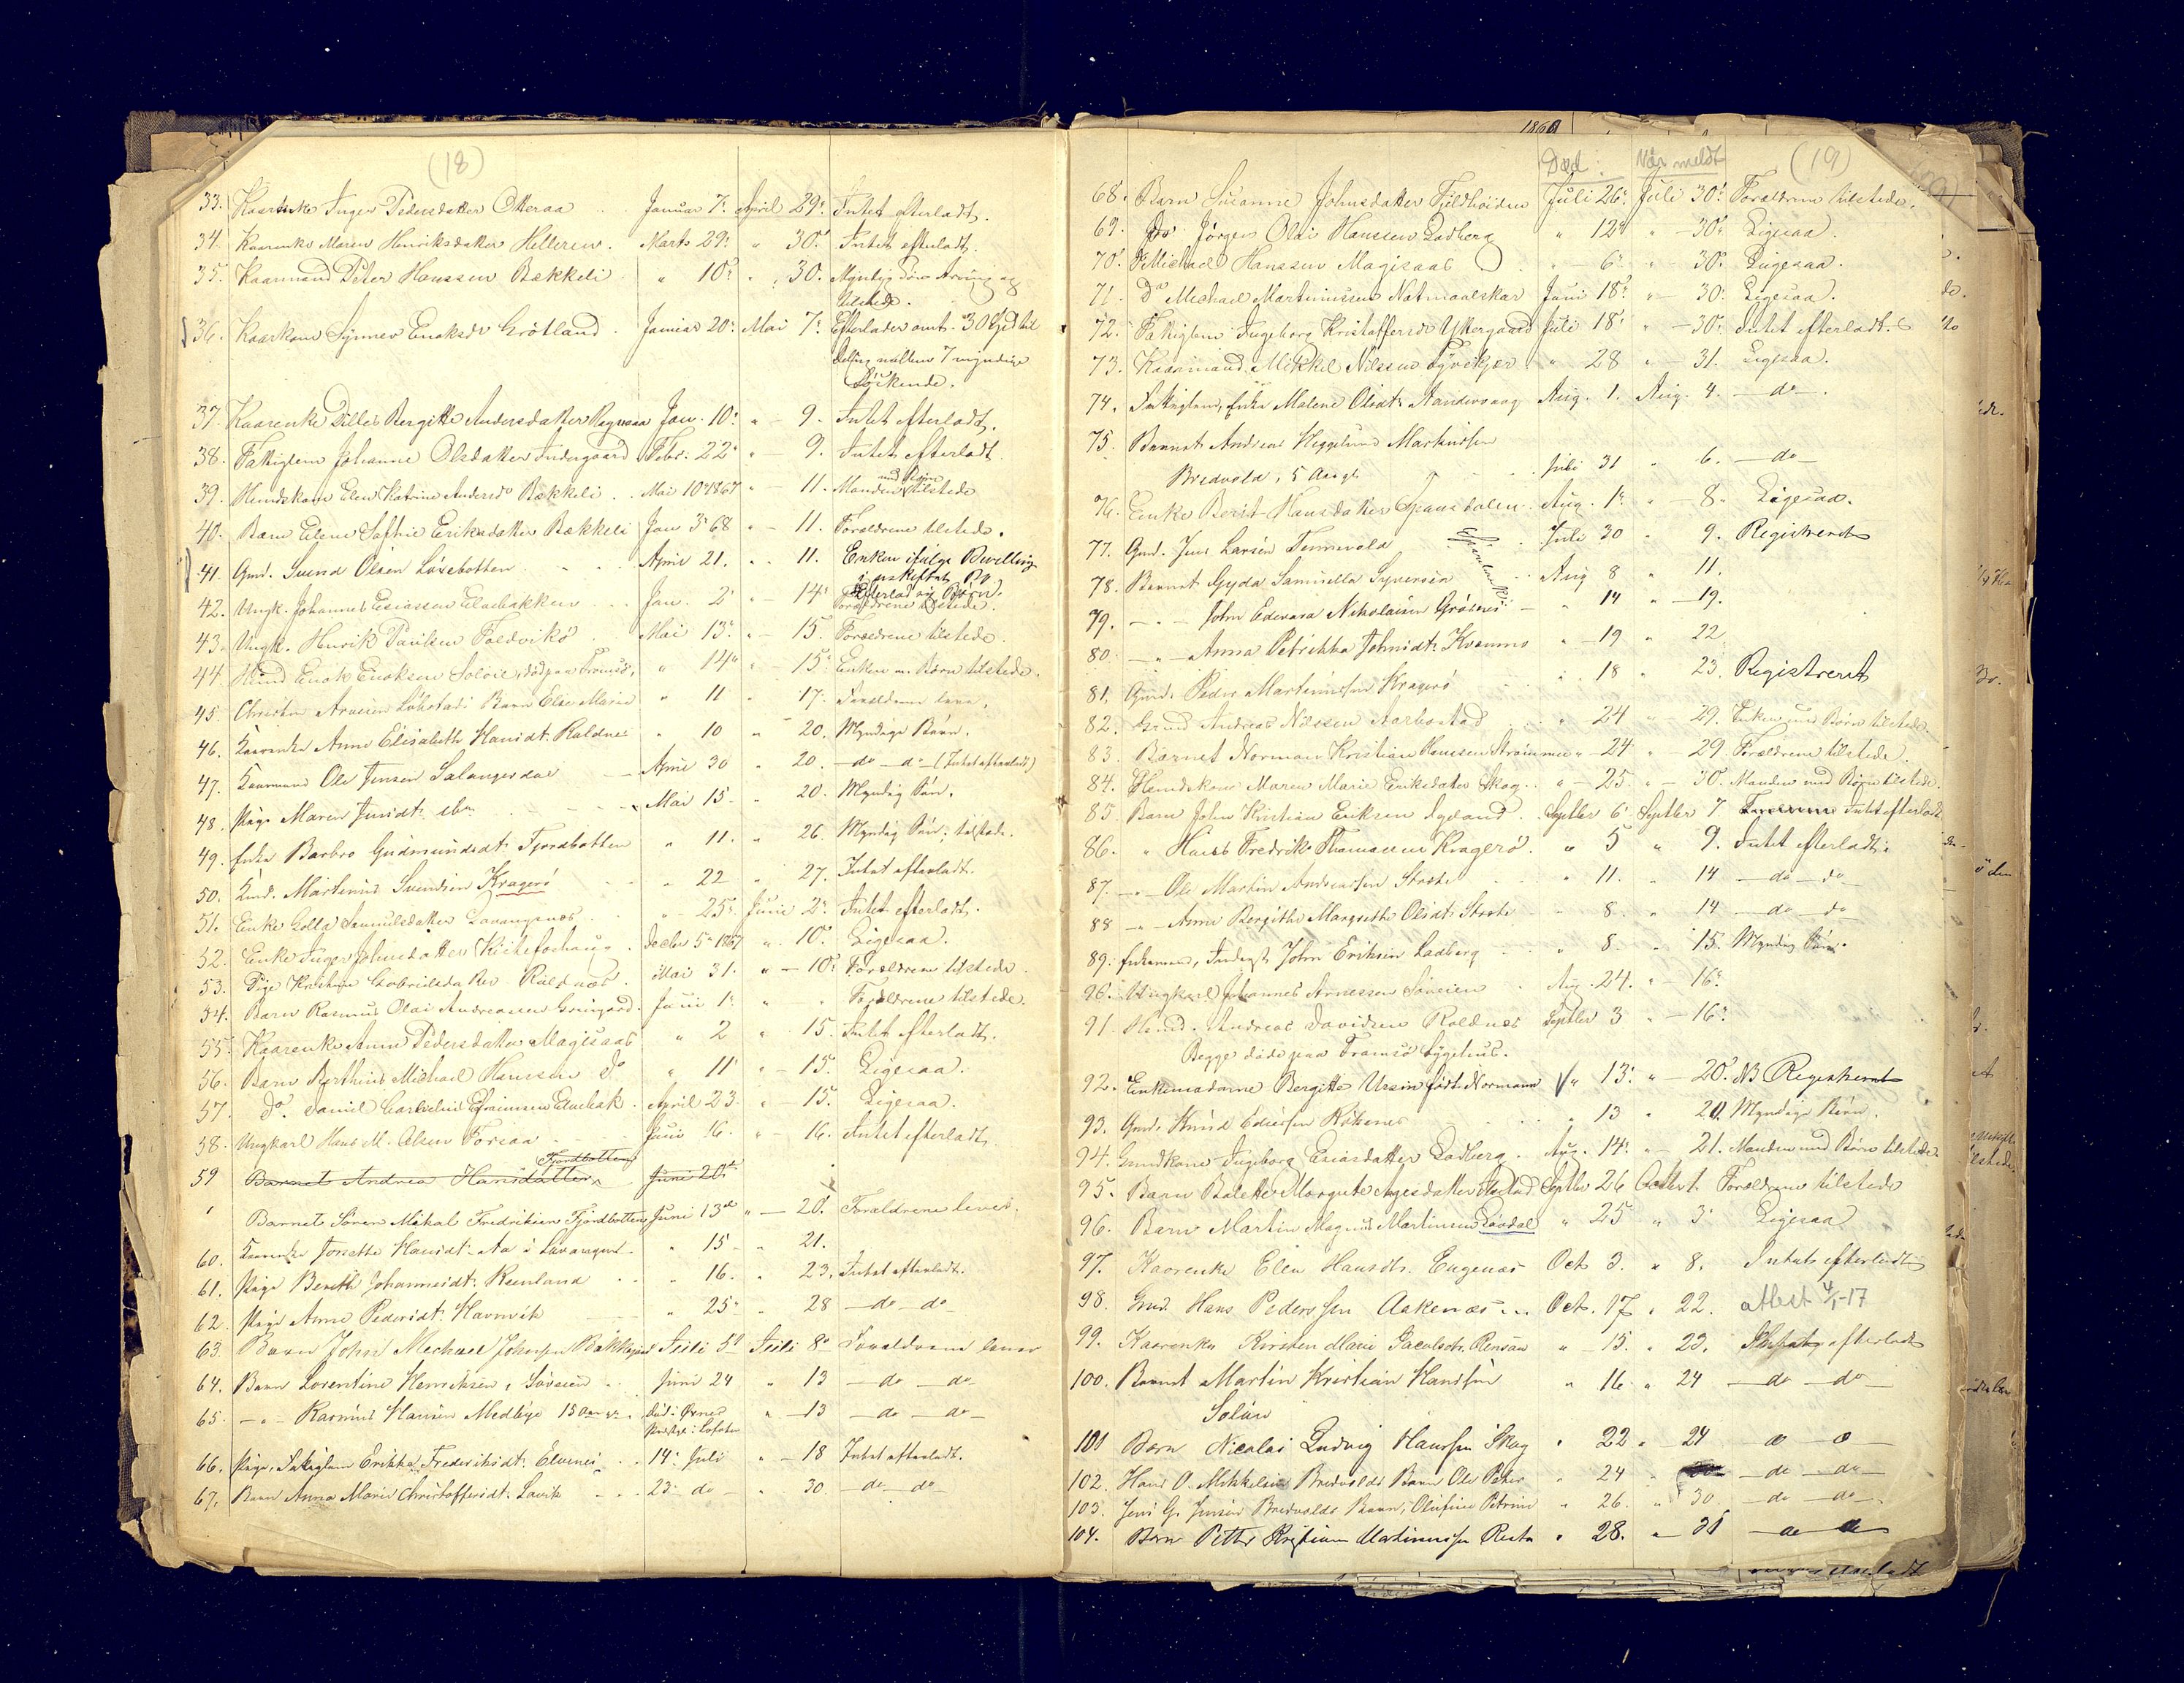 (18)
33. Kaarenke Inger Pedersdatter Otteraa Januar 7. April 29. Intet efterladt.
34. Kaarenke Maren Henriksdatter Hellersen. Marts 29. " 30. Intet efterladt.
35. Kaarmand Peter Hanssen Bækkeli " 10. " 30. Myndig Søn Arving og
tilstede.
36. Kaarkone Synnev Enoksdr Grötland. Januar 20. Mai 7. Efterlader omt. 30 Spd til
Deling mellem 7 myndige
Södskende.
37. Kaarenke Bergitte Andersdatter Jan. 10. " 9. Intet efterladt.
38. Fattiglem Johanne Olsdatter Indergaard Febr. 22. " 9. Intet efterladt.
39. Huuskone Elen Katrine Andersdr Bækkeli .. Mai 10 1867 " 11. Manden med Børn tilstede
40. Barn Elene Sofhie Eriksdatter Bækkeli Jan 3. 68 " 11. Forældrene tilstede.
41. Gmd. Svend Olsen Löxebotten April 21. " 11. Enken ifølge Bevilling
i uskiftet Bo
42. Ungk. Johannes Esiassen Elvebakken Jan. 2. " 14.
Forældrene tilstede.
43. Ungk. Henrik Paulsen Foldvik Mai 13. " 15. Forældrene tilstede.
44. Huusmd Enok Enoksen Soløi, död paa Tromsö, " 14. " 15. Enken m. Børn tilstede.
45. Christen Arnesen Löbstads Barn Else Marie " 11 " 17. Forældrene leve.
46. Kaarenke Anne Elisabeth Hansdt. Roldnes " 10 " 20. Myndige Børn.
47. Kaarmand Ole Jensen Salangsdal April 30 " 20. — do — do (Intet efterladt)
48. Pige Maren Jensdt. Mai 15. " 20. Myndig Søn.
49. Enke Barbro Gudmundsdt. Fjordbotten " 11. " 26. Myndig Søn; tilstede.
50. Martinus Svendsen Kragerö " 22 " 27. Intet efterladt.
51. Enke Golla Samuelsdatter Lavangsnes " 25. Juni 2. Intet efterladt.
52. Enke Inger Johnsdatter Decbr 5. 1867 " 10. Ligesaa.
53. Pige Gabrielsdatter Roldnes Mai 31. " — 10. Forældrene tilstede.
54. Barn Rasmus Olai Andreassen Juni 1. " " Forældrene tilstede.
55. Kaarenke Anne Pedersdatter Magisaas " 2 " 15. Intet efterladt.
56. Barn Berthins Michael Hanssen do " 11 " 15. Ligesaa.
57. do. Daniel Efraimsen Elvebak April 23. " 15. Ligesaa.
58. Ungkarl Hans M. Olsen Forsaa Juni 6. " 16. Intet efterladt.
59 Barnet Andrea Hansdatter Fjordbotten Juni 20
Barnet Sören Mikal Fredriksen Fjordbotten Juni 13 " — 20. Forældrene lever.
60. Kaarenke Hansdt. Aa i Lavangen " 15 " 21.
61. Pige Berith Johannesdt. Renland " 16. " 23. Intet efterladt.
62. Pige Anne Pedersdt. Havnvik " 25. " 28 — do — do —
63. Barn John Mechael Johnsen Bakkejord Juli 5 Juli 8 — Forældrene lever
64. Barn Lorentine Henriksen, Søveien Juni 24 " 13 — do — do
65. — " — Rasmus Hansen Medbye 15 Aar död i Öxnes " 13 — do — do —
66. Pige, Fattiglem Erikka Frederiksdt. Elvenes 14. Juli " 18 Intet efterladt.
67. Barn Anna Marie Christoffersdt. Lavik 23. do " 30 — do — do —
1868
Död: Når meldt (19)
68. Barn Susanne Johnsdatter Fjeldhöiden Juli 26. Juli 30. Forældrene tilstede.
69. do Jörgen Olai Hanssen Ladberg " 12. " — 30. Ligesaa.
70. do Michael Hanssen Magisaas " 6. " — 30. Ligesaa.
71. do Mechael Martinussen Natmaalskar Juni 18. " — 30. Ligesaa.
72. Fattiglem Ingeborg Kristoffersdr Yttergaard Juli 18. " — 30. Intet efterladt.
73. Kaarmand Mikkel Nilssen " 28 " — 31. Ligesaa.
74. Fattiglem, Enke Malene Olsdt. Aandervaag Aug. 1. Aug. 4. — do —
75. Barnet Andreas Heggelund Martinussen
Bredvold, 5 Aar gl. Juli 31 " 6. — do —
76. Enke Berit Hansdatter Spansdalen Aug. 1. " — 8. Ligesaa.
77. Gmd. Jens Larsen Tennevold Juli 30 " 9. Registreret
78. Barnet Gyda Samuella Syversen Aug 8 " 11.
79. — " — John Edevard Nikolaisen " 14 " — 19.
80. — " — Anna Petrikka Johnsdt. Kvanmo " — 19 " 22
81. Gmd. Peder Martinussen Kragerö " 18 " 23. Registreret
82. Grmd Andreas Nilssen Aarbostad " 24 " 29. Enken med Børn tilstede.
83. Barnet Norman Kristian Hanssen Strømmen " 24 " 29. Forældrene tilstede.
84. Huuskone Maren Marie Eriksdatter Skog " — 25 " — 30. Manden med Børn tilstede.
85. Barn John Kristian Eriksen Septbr 6. Septbr 7 Intet efterladt.
86. " Hans Fredrik Thomassen Kragerö. " 5 " 9. Intet efterladt.
87. — " — Ole Martin Andreassen " 11. " 14 — do — do
88 — " — Anne Bergithe Margrethe Olsdt. " 8. " 14 — do — do
89. Enkemand, Inderst John Eriksen Ladberg " 8. " 15. Myndig Børn.
90. Ungkarl Johannes Arnessen Søveien Aug. 24. " — 16.
91. Huusmd. Andreas Davidsen Roldnes Septbr 3 " — 16.
Begge döde paa Tromsö Sygehus.
92. Enkemadame Bergitte Ursin födt Normann " 13. " — 20. NB Registreret
93. Gmd. Knud Røkenes " 13 " 20. Myndige Børn.
94. Gmdkone Ingeborg Esiasdatter Ladberg. Aug. 14. " — 21. Manden med Børn tilstede
95. Barn Bolette Margrete Septbr 26 Octbr 1. Forældrene tilstede
96. Barn Martin Magnus Martinsen Løvdal " 25 " 3. Ligesaa
97. Kaarenke Elen Hansdtr. Engenæs Oct. 3. " 8. Intet efterladt
98. Gmd. Hans Pederssen Aakenæs ... Oct. 17 " 22. attest 4/1-17
99. Kaarenke Kirsten Marie Jacobsdr. Rensaa " — 15. " 23. Intet efterladt
100. Barnet Martin Kristian Hanssen " 16 " 24 — do — do —
101 Barn Nicolai Ludvig Hanssen Skog " 22 " 24
102. Hans O. Mikkelsen Bredvolds Barn Ole Peter " 24 — do — do —
103. Jens G. Jensen Bredvolds Barn, Olufine Petrine " 26. " 30. — do — do —
104. Barn Petter Kristian Martinussen " 28. " 31